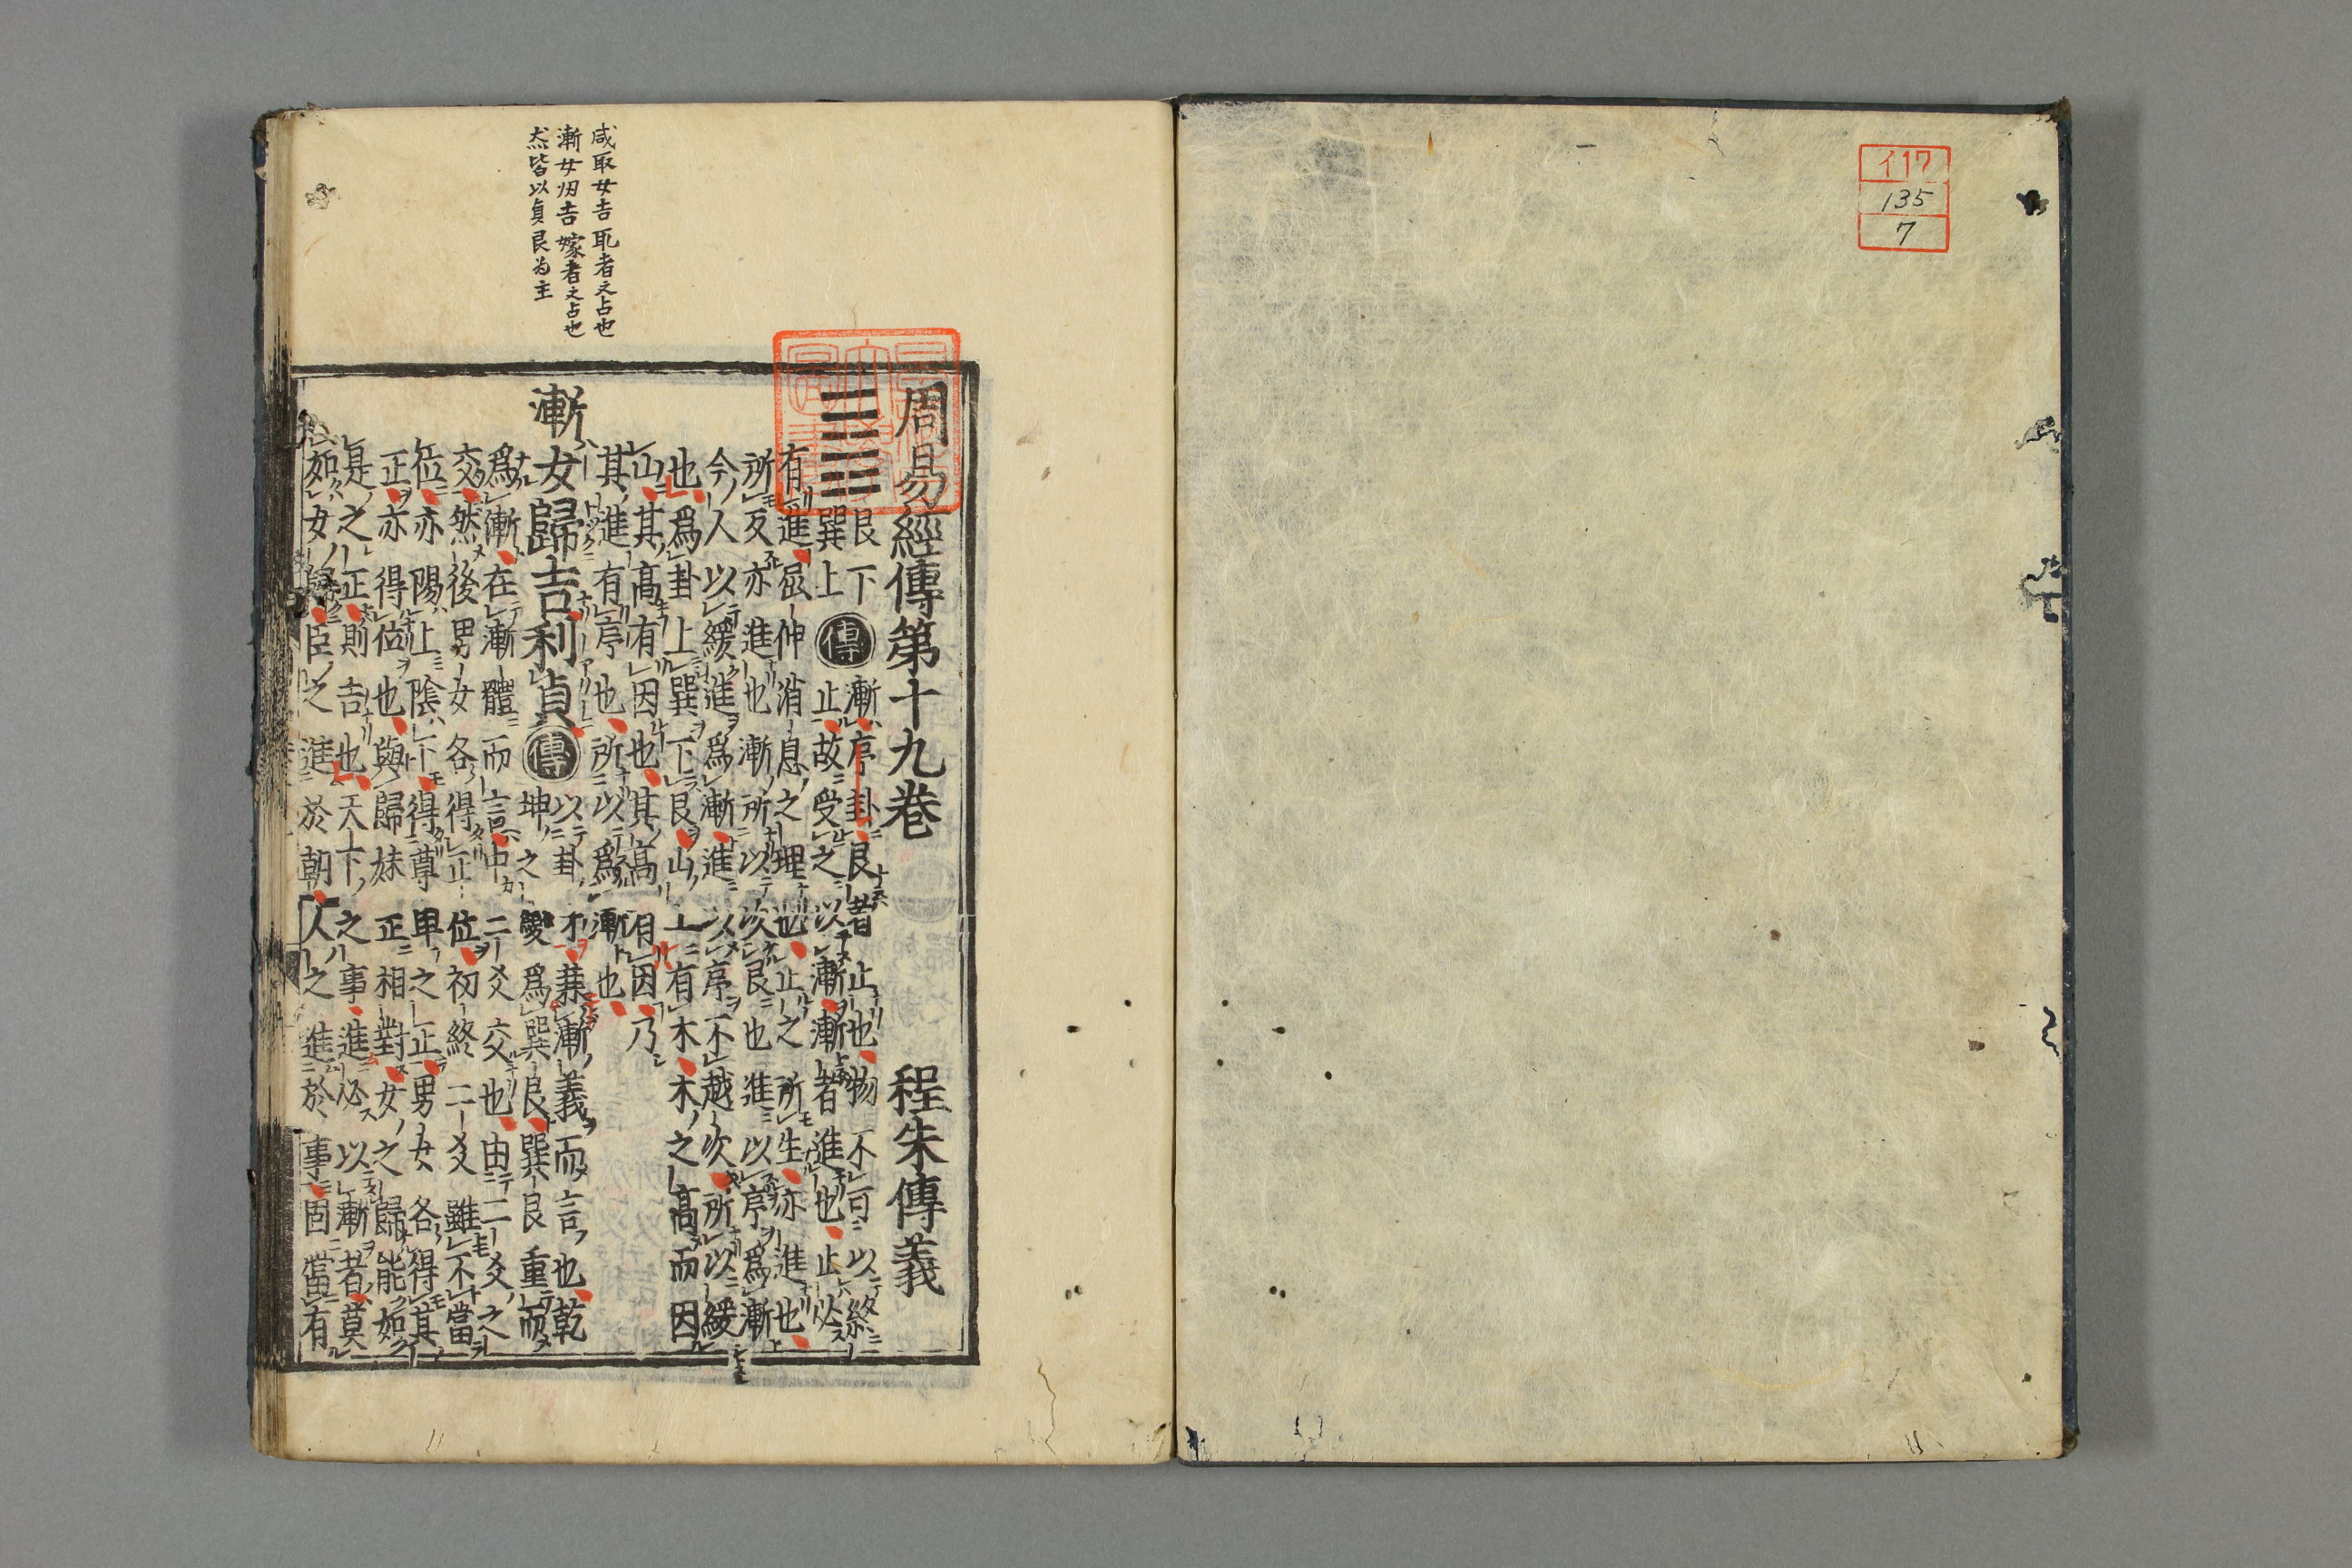 イ17
135
7
咸取女吉取者之占也
漸女㱕吉嫁者之占也
然皆以貞艮為主
周易經傳第十九卷 程朱傳義
艮下 傳 漸序卦艮者止也物不可以終
巽上 止故受之以漸漸者進也止必
有進屈伸消息之理也止之所生亦進也
所反亦進也漸所以次艮也進以序爲漸
今人以緩進爲漸進以序不越次所以緩
也爲卦上巽下艮山上有木木之高而因
山其高有因也其高有因乃
其進有序也所以爲漸也
漸女歸吉利貞 傳 以卦才兼漸義而言也乾
坤之變爲巽艮巽艮重而
爲漸在漸體而言中二爻交也由二爻之
交然後男女各得正位初終二爻雖不當
位亦陽上陰下得尊卑之正男女各得其
正亦得位也與歸妹正相對女之歸能如
是之正則吉也天下之事進必以漸者莫
如女歸臣之進於朝人之進於事固當有